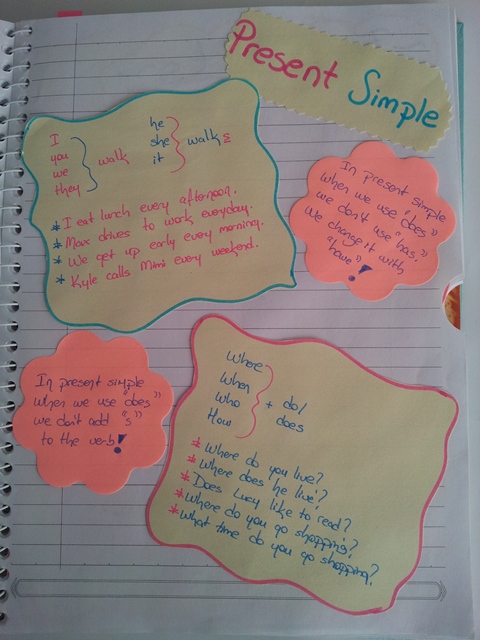 Present Simple
I
you
we
they
walk
he
she
it
walk s
* I eat lunch every afternoon.
* Max drives to work everyday.
* We get up early every morning.
* Kyle calls Mimi every weekend.
In present simple
when we use "does"
we don't use "has."
We change it with
"have"!
In present simple
when we use "does"
we don't add "s"
to the verb!
Where
When
Who
How
+ do/
does
* Where do you live?
* Where does he live?
* Does Lucy like to read?
* Where do you go shopping?
* What time do you go shopping?